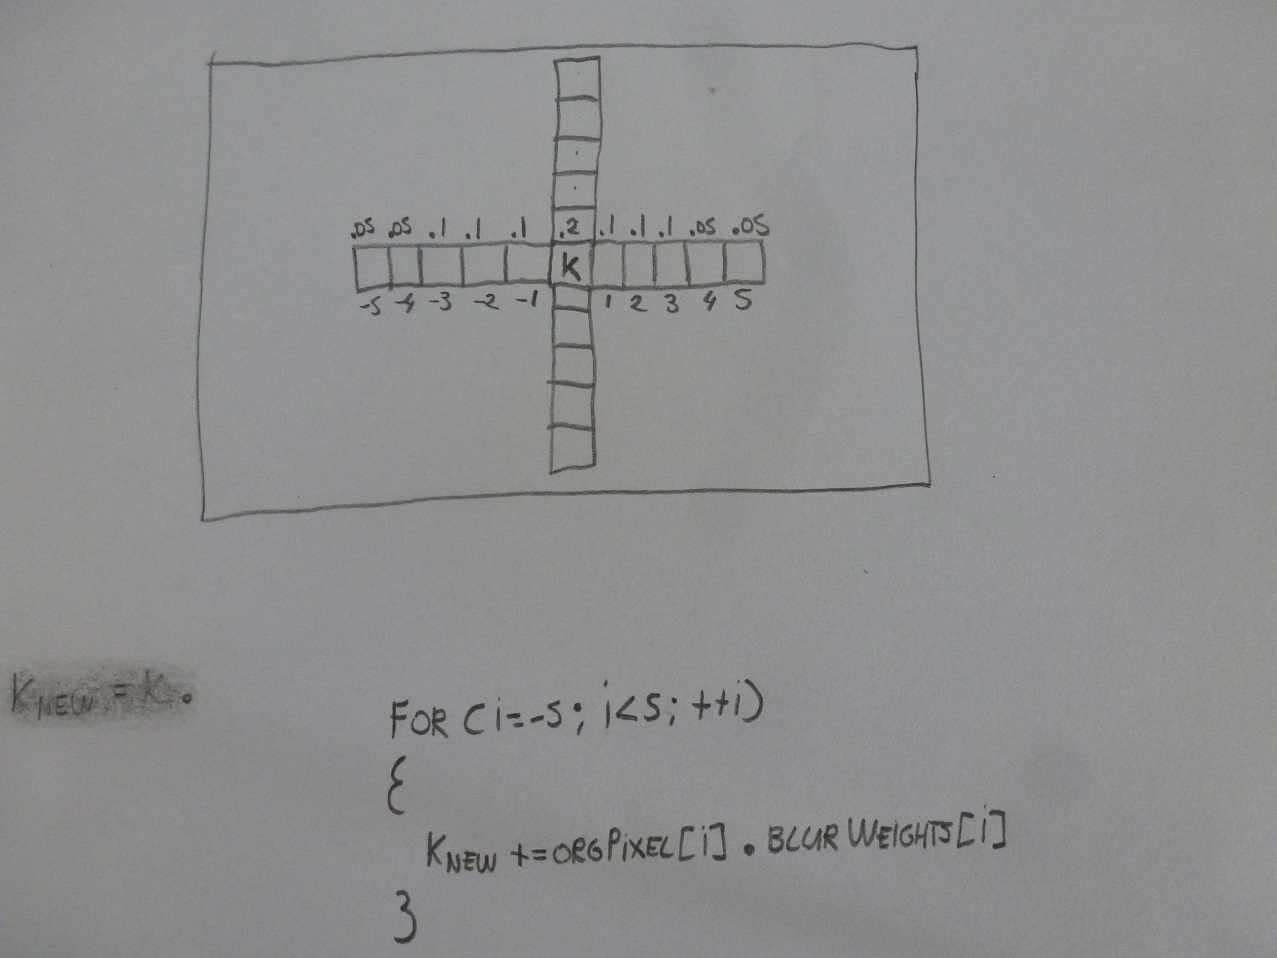 .05 .05 .1 .1 .1 .2 .1 .1 .1 .05 .05
K
-5 -4 -3 -2 -1 1 2 3 4 5
KNEW = K.
FOR (i=-5; i<5; ++i)
{
KNEW += ORGPiXEL[i] • BLUR WEIGHTS[i]
}